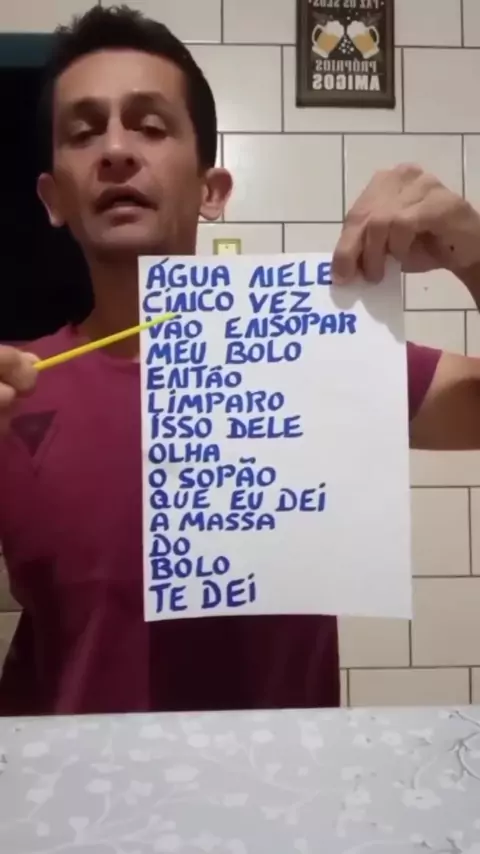 PAZ OS SEUS
PRÓPRIOS
AMIGOS
ÁGUA NELE
CINCO VEZ
VÃO ENSOPAR
MEU BOLO
ENTÃO
LIMPARO
ISSO DELE
OLHA
O SOPÃO
QUE EU DEI
A MASSA
DO
BOLO
TE DEI